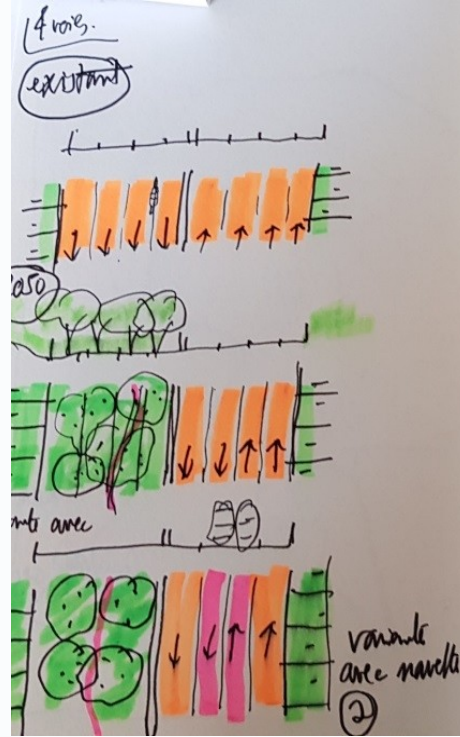 4 voies.
existant
2050
avec
variante
avec navette
2